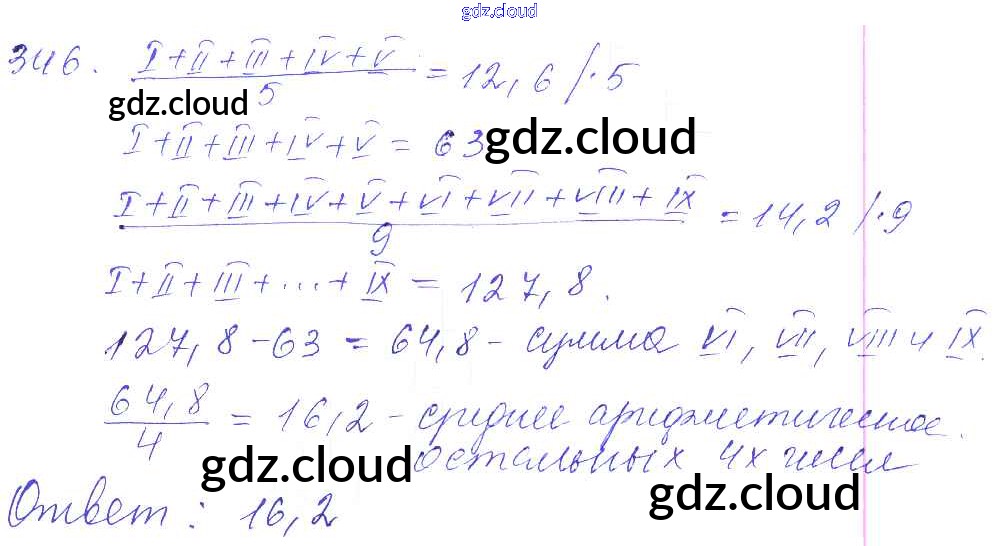 gdz.cloud
346. I + II + III + IV + V / 5 = 12,6 /·5
gdz.cloud
I + II + III + IV + V = 63
gdz.cloud
I + II + III + IV + V + VI + VII + VIII + IX / 9 = 14,2 /·9
I + II + III + ... + IX = 127,8.
127,8 - 63 = 64,8 - сумма VI, VII, VIII и IX.
64,8 / 4 = 16,2 - среднее арифметическое.
остальных 4х чисел
gdz.cloud
gdz.cloud
Ответ: 16,2